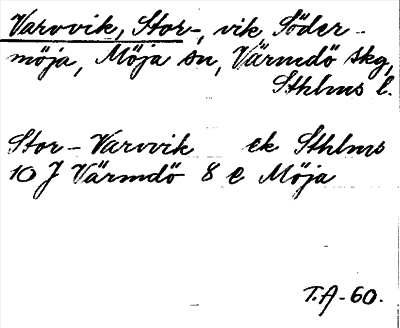 Varvvik, Stor-, vik, Söder-
möja, Möja sn, Värmdö skg,
Sthlms l.
Stor-Varvvik ek Sthlms
10 J Värmdö 8 e Möja
T.A-60.